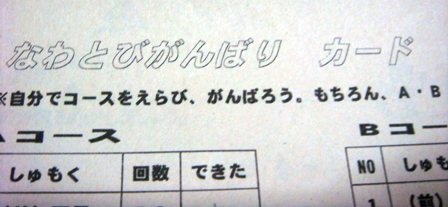 なわとびがんばり カード
※自分でコースをえらび、がんばろう。もちろん、A・B
Aコース
Bコー
しゅもく 回数 できた
NO しゅも
1 (前)